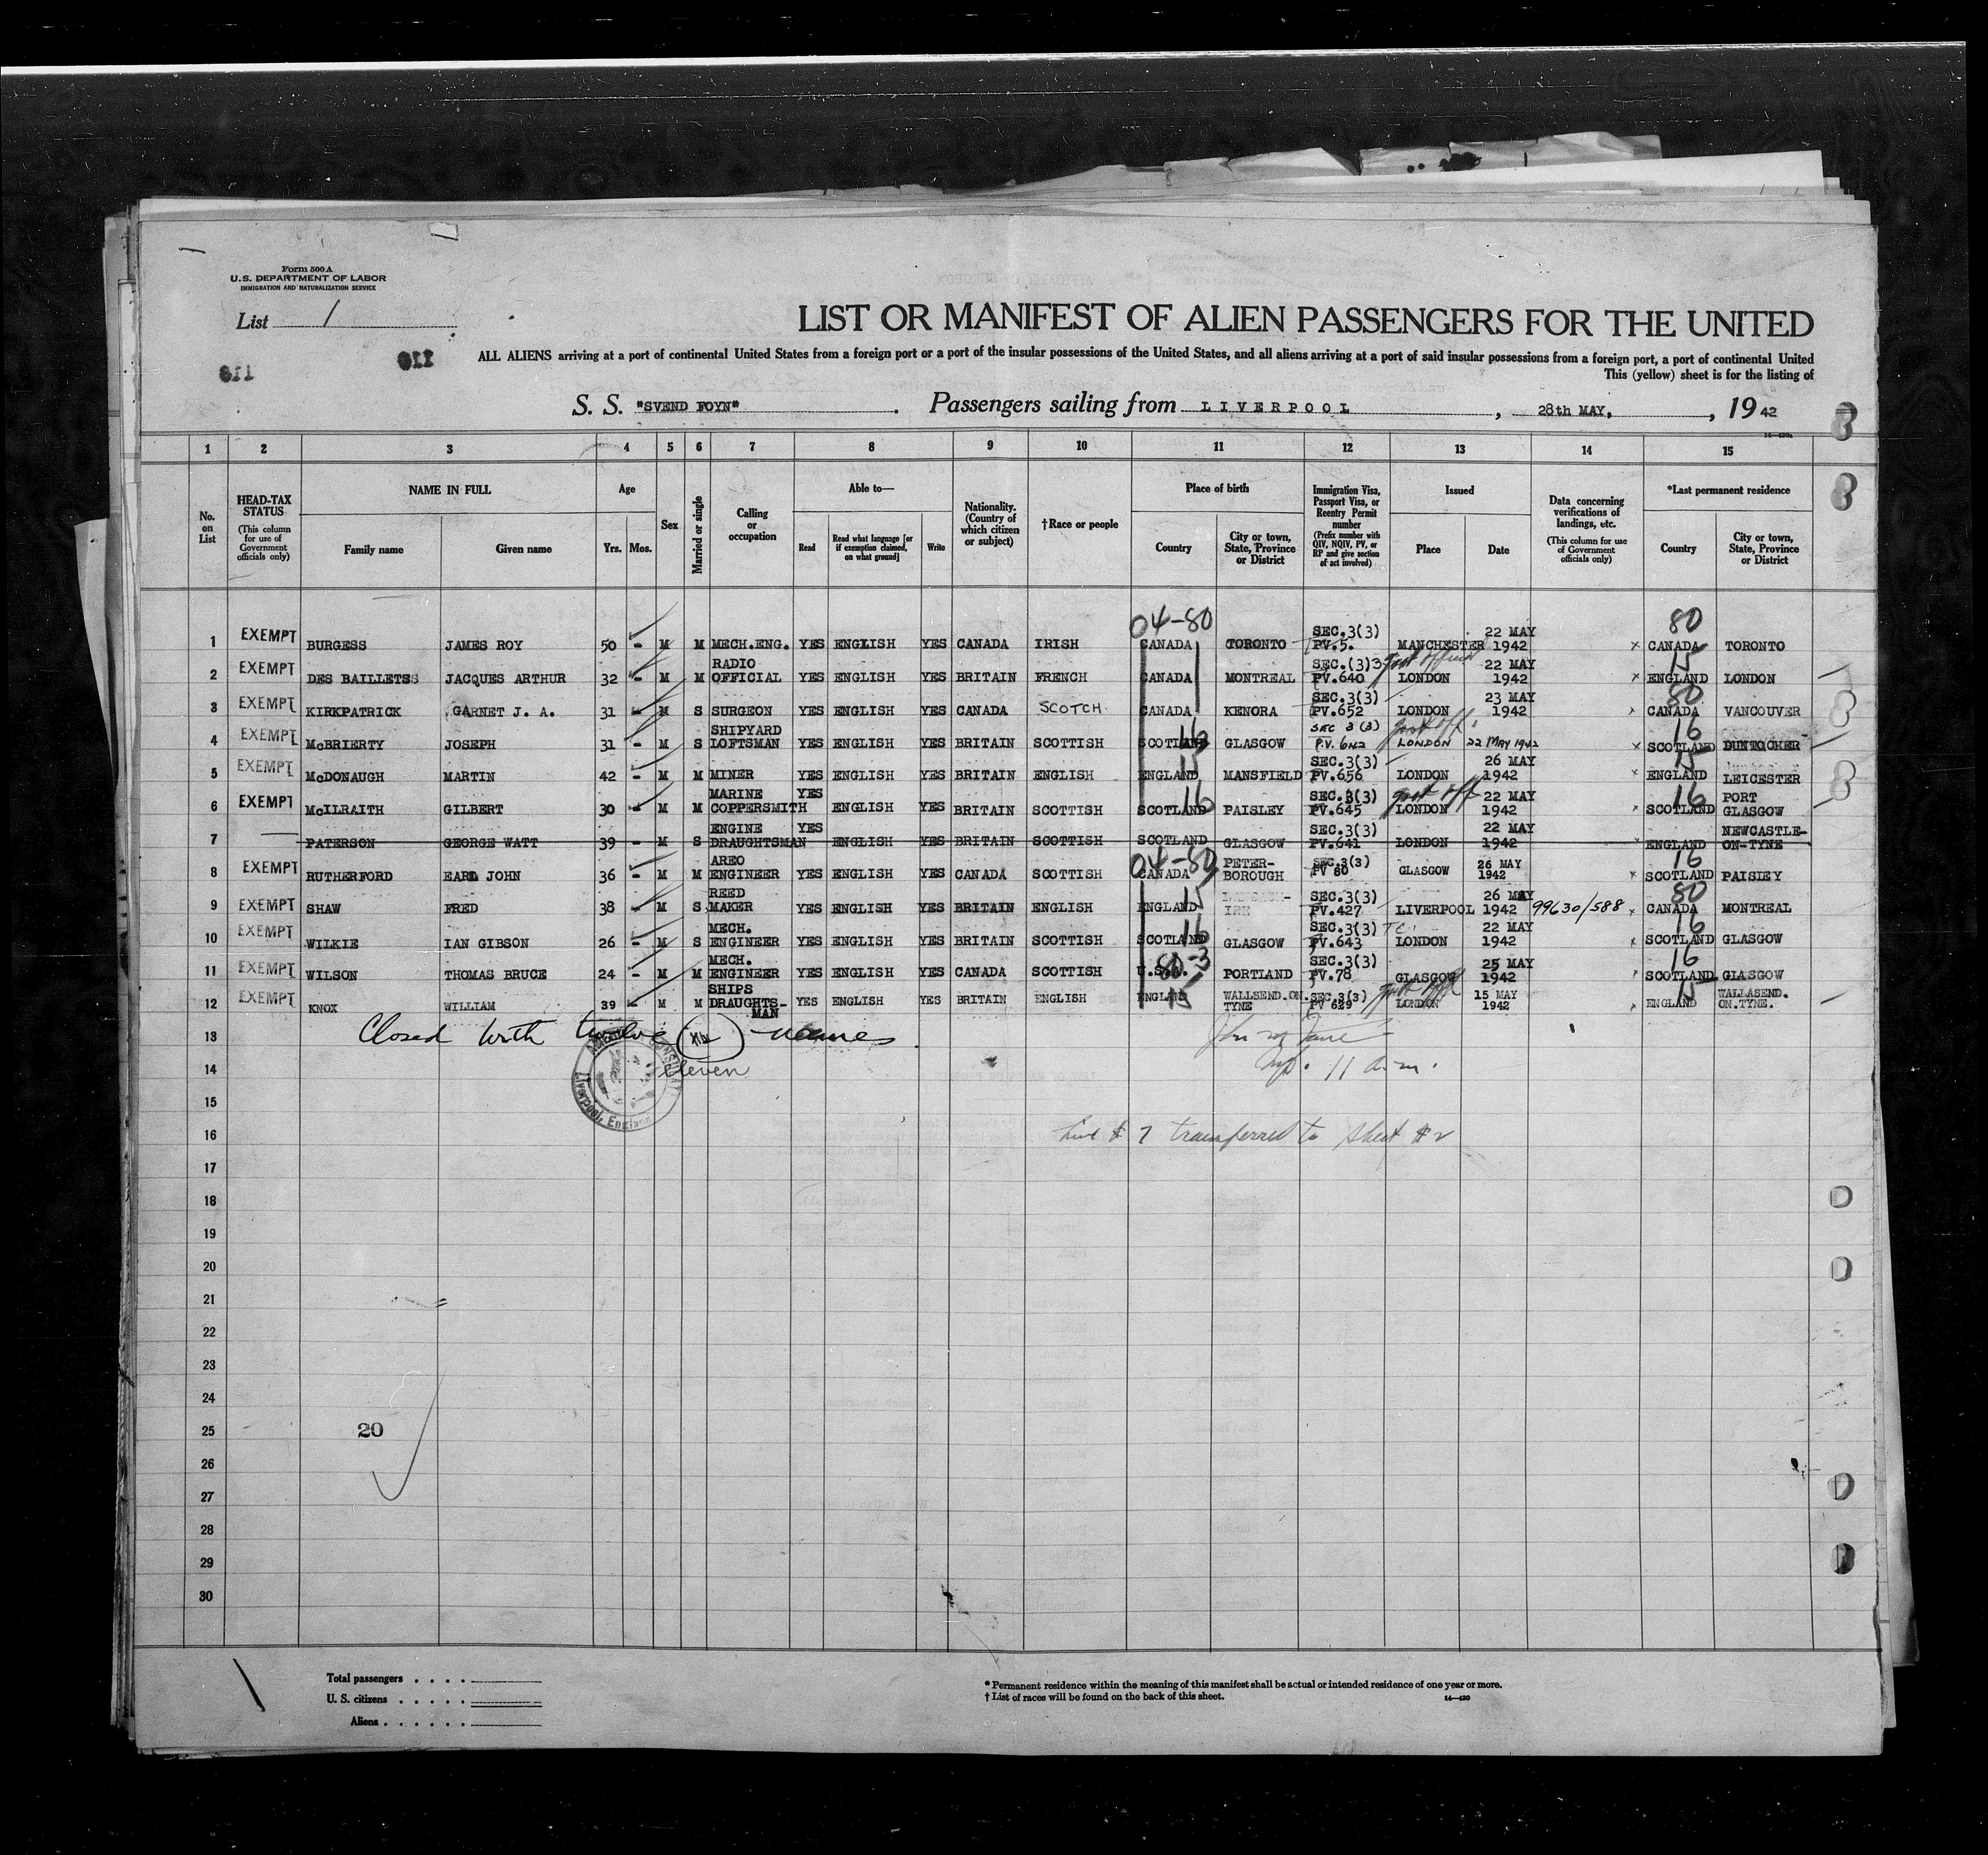 Form 500 A
U.S. DEPARTMENT OF LABOR
IMMIGRATION AND NATURALIZATION SERVICE
List 1
LIST OR MANIFEST OF ALIEN PASSENGERS FOR THE UNITED
ALL ALIENS arriving at a port of continental United States from a foreign port or a port of the insular possessions of the United States, and all aliens arriving at a port of said insular possessions from a foreign port, a port of continental United
This (yellow) sheet is for the listing of
S. S. "SVEND FOYN" . Passengers sailing from LIVERPOOL , 28th MAY, , 19 42
1 2 3 4 5 6 7 8 9 10 11 12 13 14 15
No. on List
HEAD-TAX STATUS (This column for use of Government officials only)
NAME IN FULL Family name Given name
Age Yrs. Mos.
Sex
Married or single
Calling or occupation
Able to— Read Read what language [or if exemption claimed, on what ground] Write
Nationality. (Country of which citizen or subject)
†Race or people
Place of birth Country City or town, State, Province or District
Immigration Visa, Passport Visa, or Reentry Permit number (Prefix number with QIV, NQIV, PV, or RP and give section of act involved)
Issued Place Date
Data concerning verifications of landings, etc. (This column for use of Government officials only)
*Last permanent residence Country City or town, State, Province or District
04-80 80
1 EXEMPT BURGESS JAMES ROY 50 - M M MECH.ENG. YES ENGLISH YES CANADA IRISH CANADA TORONTO SEC.3(3) PV.5. MANCHESTER 22 MAY 1942 x CANADA TORONTO
15
2 EXEMPT DES BAILLETS JACQUES ARTHUR 32 - M M RADIO OFFICIAL YES ENGLISH YES BRITAIN FRENCH CANADA MONTREAL SEC.(3)3 PV.640 LONDON 22 MAY 1942 x ENGLAND LONDON
80
3 EXEMPT KIRKPATRICK GARNET J. A. 31 - M S SURGEON YES ENGLISH YES CANADA SCOTCH CANADA KENORA SEC.3(3) PV.652 LONDON 23 MAY 1942 CANADA VANCOUVER
16 16
4 EXEMPT McBRIERTY JOSEPH 31 - M S SHIPYARD LOFTSMAN YES ENGLISH YES BRITAIN SCOTTISH SCOTLAND GLASGOW SEC 3(3) P.V. 642 LONDON 22 MAY 1942 x SCOTLAND DUNTOCHER
15 15
5 EXEMPT McDONAUGH MARTIN 42 - M M MINER YES ENGLISH YES BRITAIN ENGLISH ENGLAND MANSFIELD SEC.3(3) PV.656 LONDON 26 MAY 1942 ENGLAND LEICESTER
16 16
6 EXEMPT McILRAITH GILBERT 30 - M M MARINE COPPERSMITH YES ENGLISH YES BRITAIN SCOTTISH SCOTLAND PAISLEY SEC.3(3) PV.645 LONDON 22 MAY 1942 SCOTLAND PORT GLASGOW
7 PATERSON GEORGE WATT 39 - M S ENGINE DRAUGHTSMAN YES ENGLISH YES BRITAIN SCOTTISH SCOTLAND GLASGOW SEC.3(3) PV.641 LONDON 22 MAY 1942 ENGLAND NEWCASTLE-ON-TYNE
04-80 16
8 EXEMPT RUTHERFORD EARL JOHN 36 - M M AREO ENGINEER YES ENGLISH YES CANADA SCOTTISH CANADA PETER-BOROUGH SEC.3(3) PV 80 GLASGOW 26 MAY 1942 x SCOTLAND PAISLEY
15 80
9 EXEMPT SHAW FRED 38 - M S REED MAKER YES ENGLISH YES BRITAIN ENGLISH ENGLAND SEC.3(3) PV.427 LIVERPOOL 26 MAY 1942 99630/588 CANADA MONTREAL
16 16
10 EXEMPT WILKIE IAN GIBSON 26 - M S MECH. ENGINEER YES ENGLISH YES BRITAIN SCOTTISH SCOTLAND GLASGOW SEC.3(3) PV.643 LONDON 22 MAY 1942 x SCOTLAND GLASGOW
80-3 16
11 EXEMPT WILSON THOMAS BRUCE 24 - M M MECH. ENGINEER YES ENGLISH YES CANADA SCOTTISH U.S.A. PORTLAND SEC.3(3) PV.78 GLASGOW 25 MAY 1942 SCOTLAND GLASGOW
15 15
12 EXEMPT KNOX WILLIAM 39 M M SHIPS DRAUGHTS-MAN YES ENGLISH YES BRITAIN ENGLISH ENGLAND WALLSEND.ON.TYNE SEC.3(3) PV 629 LONDON 15 MAY 1942 ENGLAND WALLASEND.ON.TYNE.
13 Closed with twelve names
14 eleven 11 a.m.
Liverpool, England
15
16 Line # 7 transferred to sheet #2
17
18
19
20
21
22
23
24
25 20
26
27
28
29
30
Total passengers . . . .
U. S. citizens . . . . .
Aliens . . . . . .
* Permanent residence within the meaning of this manifest shall be actual or intended residence of one year or more.
† List of races will be found on the back of this sheet. 14—430